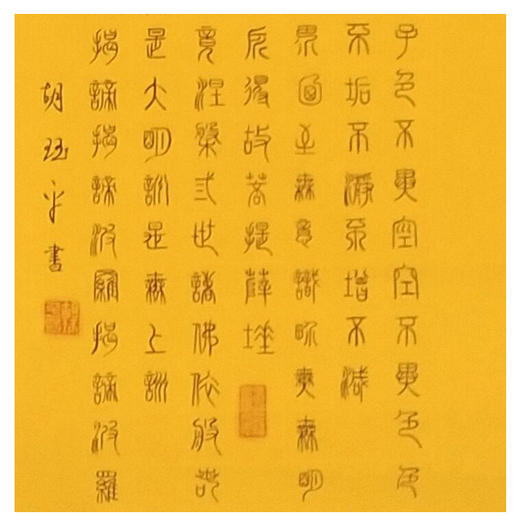 子色不異空空不異色色
不垢不淨不增不減
界乃至無意識界無無明
所得故菩提薩埵
竟涅槃弎世諸佛依般若
是大明詶是無上詶
揭諦揭諦波羅揭諦波羅
胡珏平書